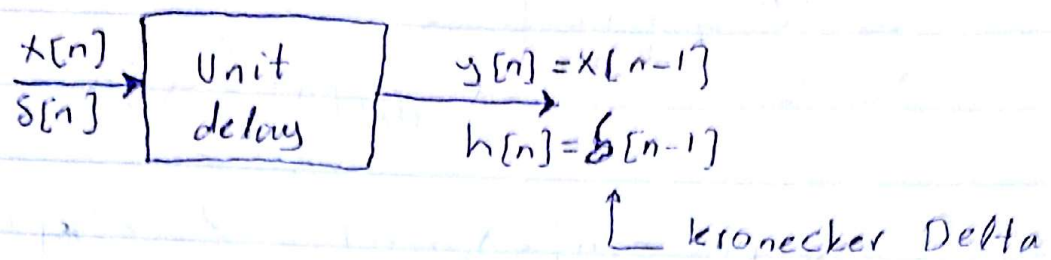 x[n]
δ[n]
Unit
delay
y[n] = x[n-1]
h[n] = δ[n-1]
kronecker Delta